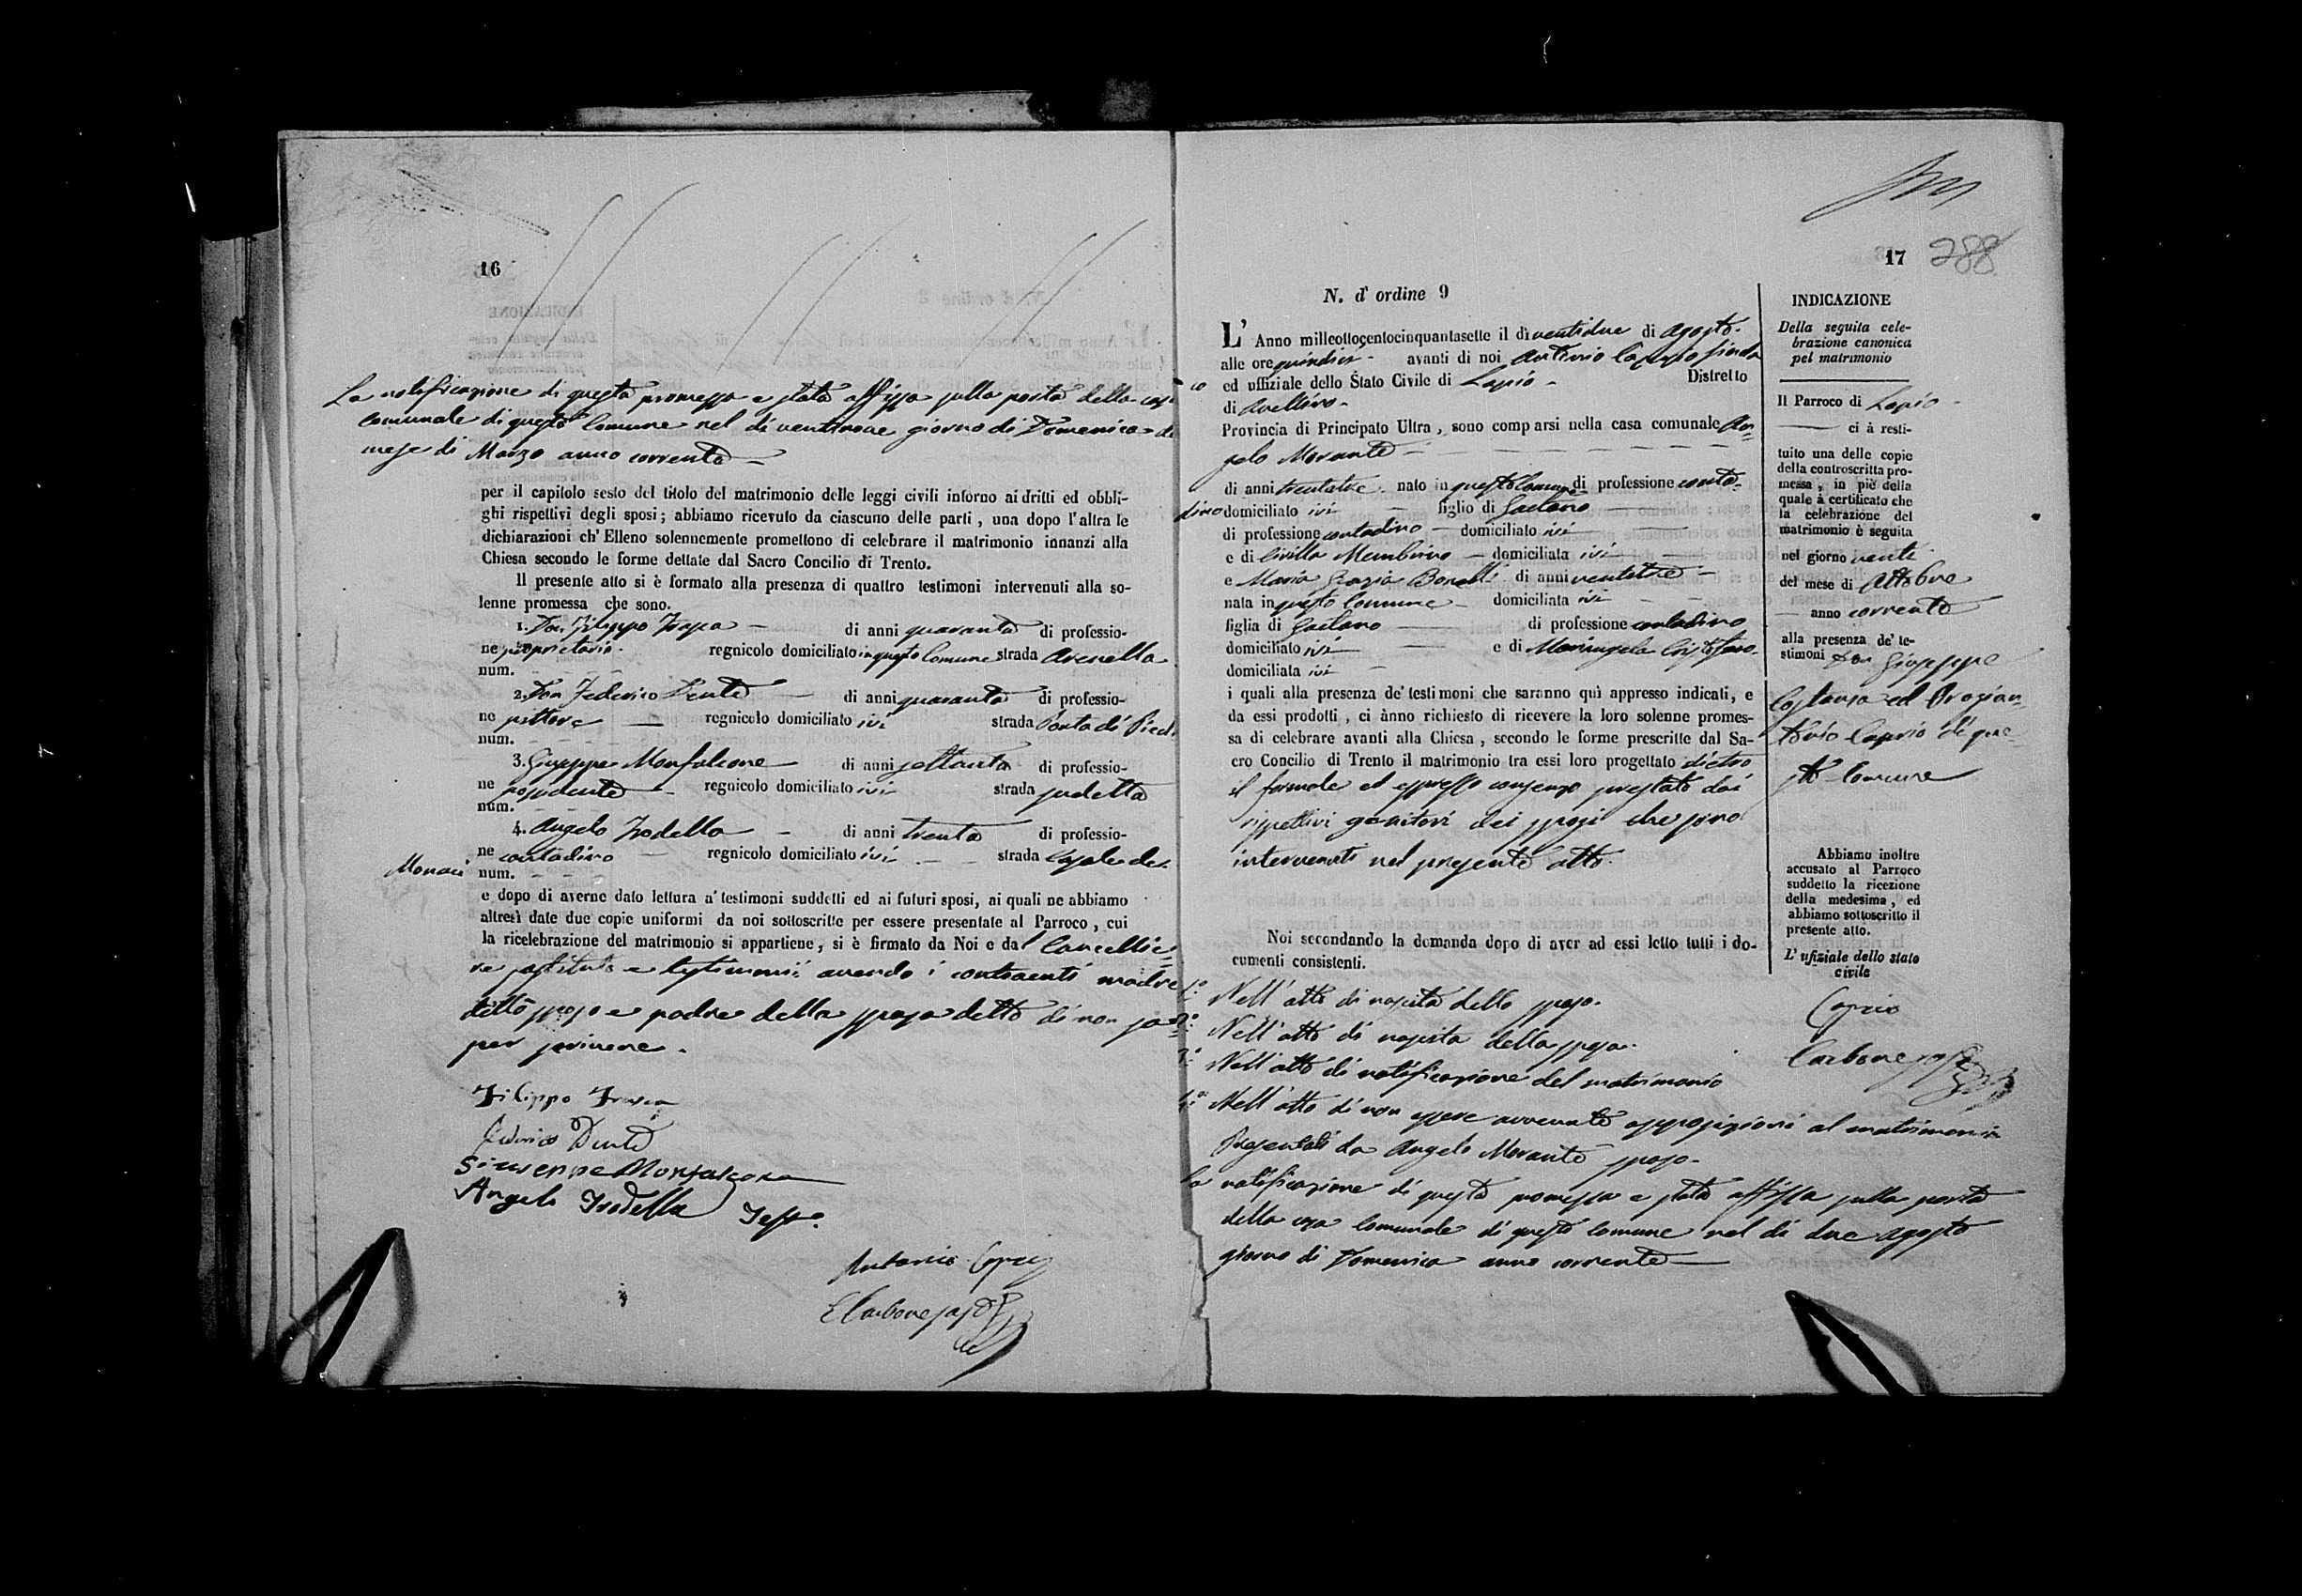 16
La notificazione di questa promessa e stata affissa sulla porta della casa
comunale di questo Comune nel dì ventinove giorno di Domenica di
mese di Marzo anno corrente
per il capitolo sesto del titolo del matrimonio delle leggi civili intorno ai dritti ed obbli-
ghi rispettivi degli sposi; abbiamo ricevuto da ciascuno delle parti, una dopo l'altra le
dichiarazioni ch' Elleno solennemente promettono di celebrare il matrimonio innanzi alla
Chiesa secondo le forme dettate dal Sacro Concilio di Trento.
Il presente atto si è formato alla presenza di quattro testimoni intervenuti alla so-
lenne promessa che sono.
1. Don Filippo di anni quaranta di professio-
ne proprietario regnicolo domiciliato in questo Comune strada Arenella
num.
2. Don Federico Dente di anni quaranta di professio-
ne pittore regnicolo domiciliato ivi strada Porta di
num.
3. Giuseppe Monfalcone di anni settanta di professio-
ne possidente regnicolo domiciliato ivi strada
num.
4. Angelo Trodella di anni trenta di professio-
ne contadino regnicolo domiciliato ivi strada Casale dei
Monaci num.
e dopo di averne dato lettura a' testimoni suddetti ed ai futuri sposi, ai quali ne abbiamo
altresì date due copie uniformi da noi sottoscritte per essere presentate al Parroco, cui
la ricelebrazione del matrimonio si appartiene, si è firmato da Noi e dal Cancellie-
re sostituto e testimonii avendo i contraenti madre
dello sposo e padre della sposa detto di non sa-
per scrivere.
Filippo
Federico Dente
Giuseppe Monfalcone
Angelo Trodella Test.
Antonio Caprio
E Carbone sost
17 288
N. d' ordine 9
L' Anno milleottocentocinquantasette il dì ventidue di Agosto
alle ore quindici avanti di noi Antonio Caprio Sinda
co ed uffiziale dello Stato Civile di Lapio Distretto
di Avellino
Provincia di Principato Ultra, sono comparsi nella casa comunale An-
gelo Morante
di anni trentatre nato in questo Comune di professione conta-
dino domiciliato ivi figlio di Gaetano
di professione contadino domiciliato ivi
e di Civilla Membrino domiciliata ivi
e Maria Grazia Bonelli di anni ventitre
nata in questo Comune domiciliata ivi
figlia di Gaetano di professione contadino
domiciliato ivi e di Mariangela Cristofaro
domiciliata ivi
i quali alla presenza de' testimoni che saranno quì appresso indicati, e
da essi prodotti, ci ànno richiesto di ricevere la loro solenne promes-
sa di celebrare avanti alla Chiesa, secondo le forme prescritte dal Sa-
cro Concilio di Trento il matrimonio tra essi loro progettato dietro
il formale ed espresso consenso prestato dai
rispettivi genitori dei sposi che sono
intervenuti nel presente atto.
Noi secondando la domanda dopo di aver ad essi letto tutti i do-
cumenti consistenti.
1° Nell' atto di nascita dello sposo.
2° Nell' atto di nascita della sposa.
3° Nell' atto di notificazione del matrimonio
4° Nell' atto di non essere avvenuto opposizioni al matrimonio
Presentati da Angelo Morante sposo.
La notificazione di questa promessa e stata affissa sulla porta
della casa Comunale di questo Comune nel dì due Agosto
giorno di Domenica anno corrente
INDICAZIONE
Della seguita cele-
brazione canonica
pel matrimonio
Il Parroco di Lapio
ci à resti-
tuito una delle copie
della controscritta pro-
messa, in piè della
quale à certificato che
la celebrazione del
matrimonio è seguita
nel giorno venti
del mese di Ottobre
anno corrente
alla presenza de' te-
stimoni Don Giuseppe
Costanza ed Orazian-
tonio Caprio di que-
sto Comune
Abbiamo inoltre
accusato al Parroco
suddetto la ricezione
della medesima, ed
abbiamo sottoscritto il
presente atto.
L' ufiziale dello stato
civile
Caprio
Carbone sost